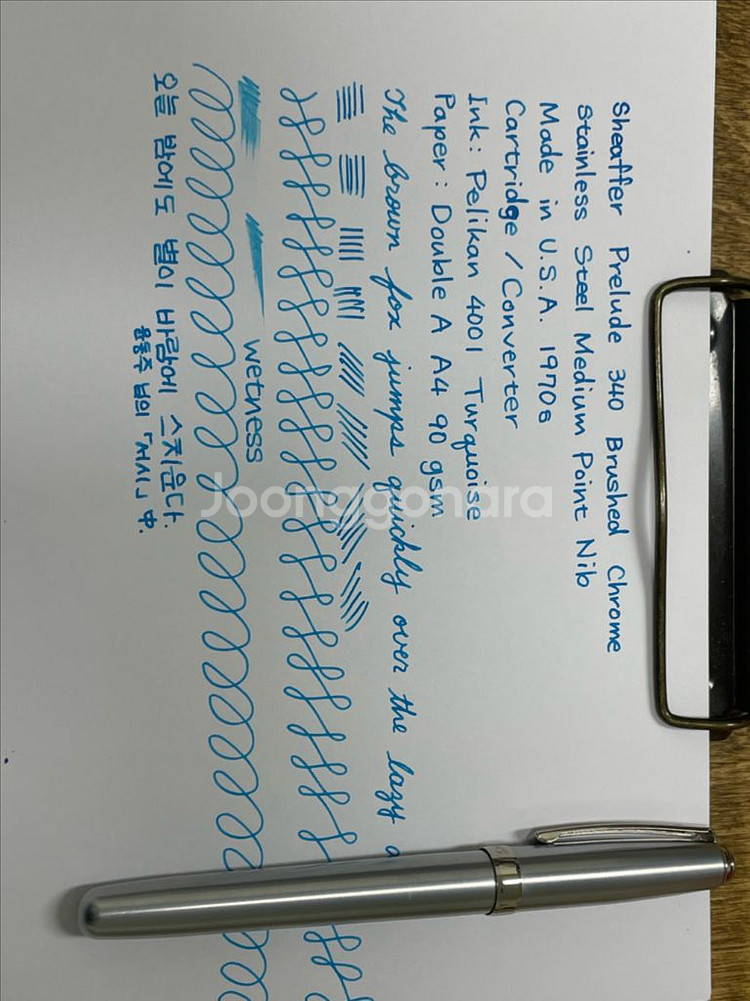 Sheaffer Prelude 340 Brushed Chrome
Stainless Steel Medium Point Nib
Made in U.S.A. 1970s
Cartridge / Converter
Ink: Pelikan 4001 Turquoise
Paper: Double A A4 90 gsm
The brown fox jumps quickly over the lazy
wetness
오늘 밤에도 별이 바람에 스치운다.
윤동주 님의 「서시」 中.
Joonggonara